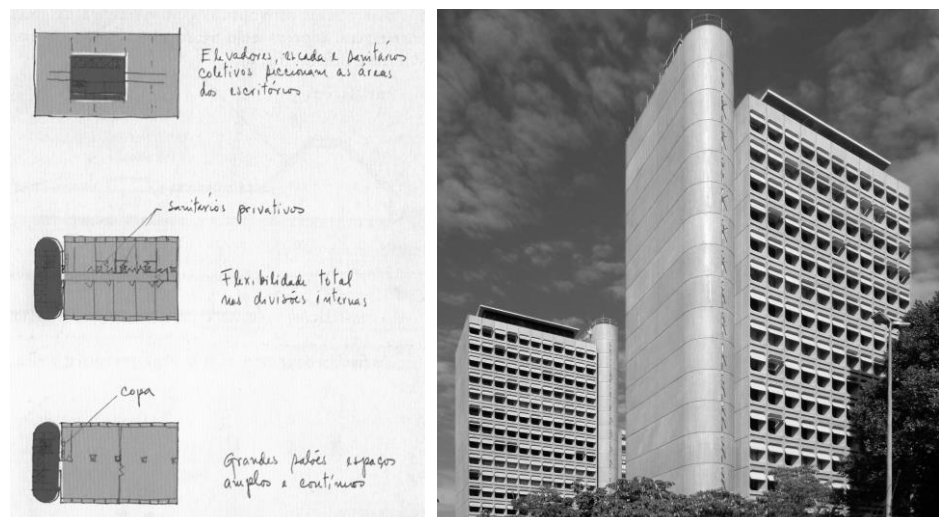 Elevadores, escada e sanitários
coletivos seccionam as áreas
dos escritórios
sanitários privativos
Flexibilidade total
nas divisões internas
copa
Grandes salões espaços
amplos e contínuos